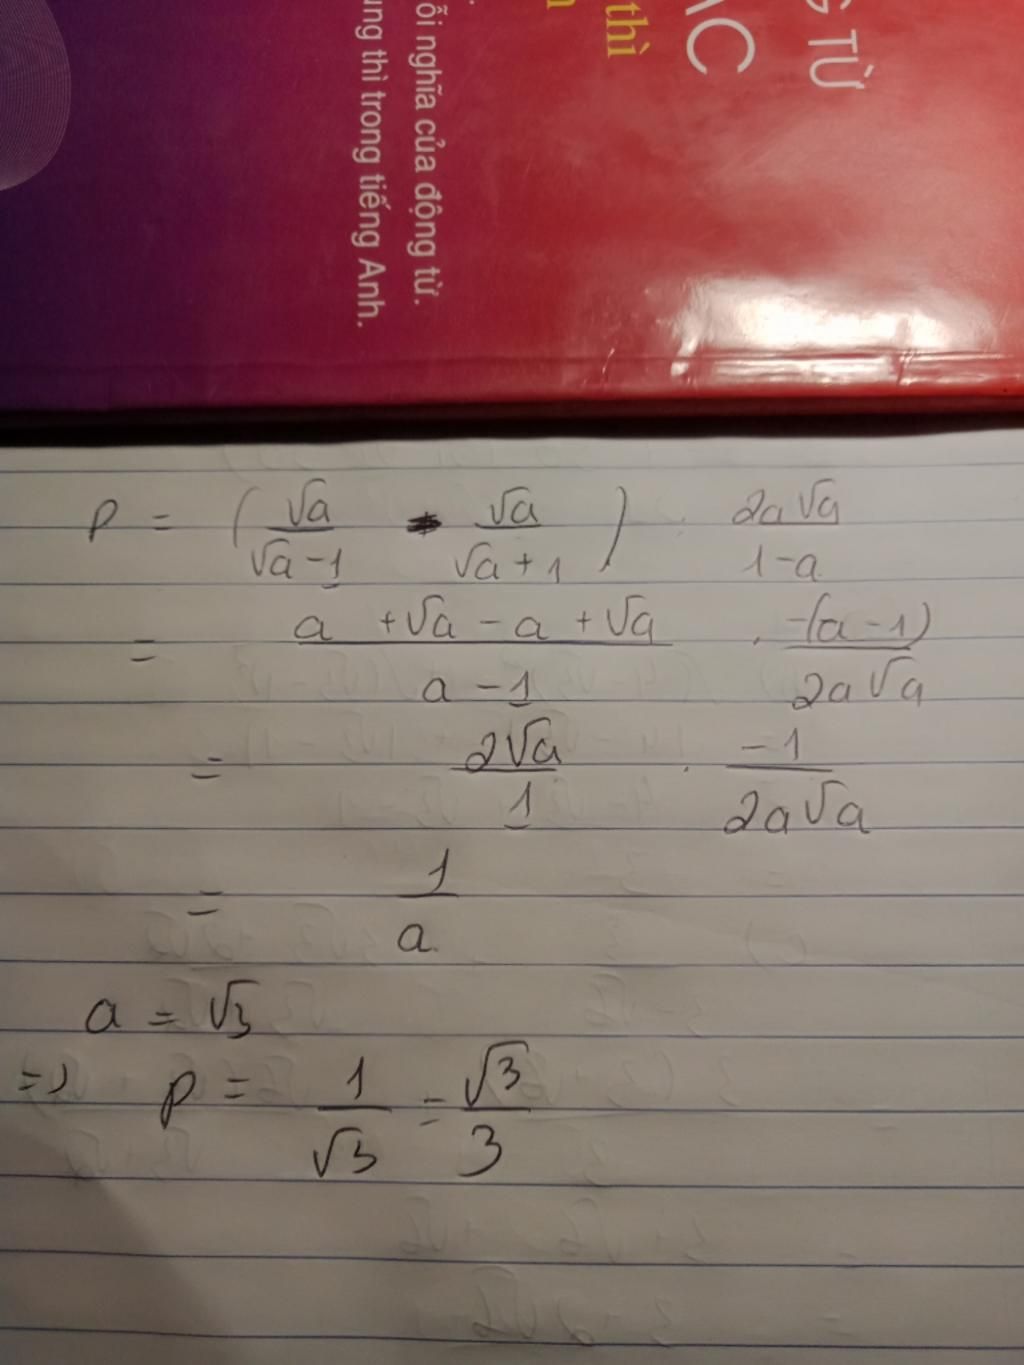 G TỪ
ÁC
thì
ỗi nghĩa của động từ.
ung thì trong tiếng Anh.
P = (√a/(√a-1) - √a/(√a+1)) : 2a√a/(1-a)
= (a + √a - a + √a)/(a-1) . -(a-1)/(2a√a)
= 2√a/1 . -1/(2a√a)
= 1/a
a = √3
=> P = 1/√3 = √3/3